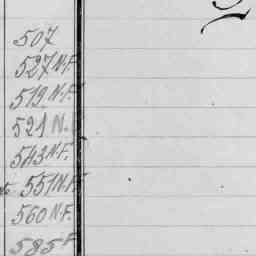 507
527 N.F.
519 N.F.
521 N.
543 N.F.
551 N.F.
560 N.F.
585 F